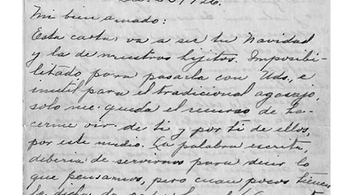 Mi bien amado:
Esta carta va a ser tu Navidad
y la de nuestros hijitos. Imposibi-
litado, para pasarla con Uds. e
inutil para el tradicional agasajo,
solo me queda el recurso de ha-
cerme oir de ti y por ti de ellos,
por este medio. La palabra escrita
deberia de servirnos para decir lo
que pensamos, pero cuan pocos tienen